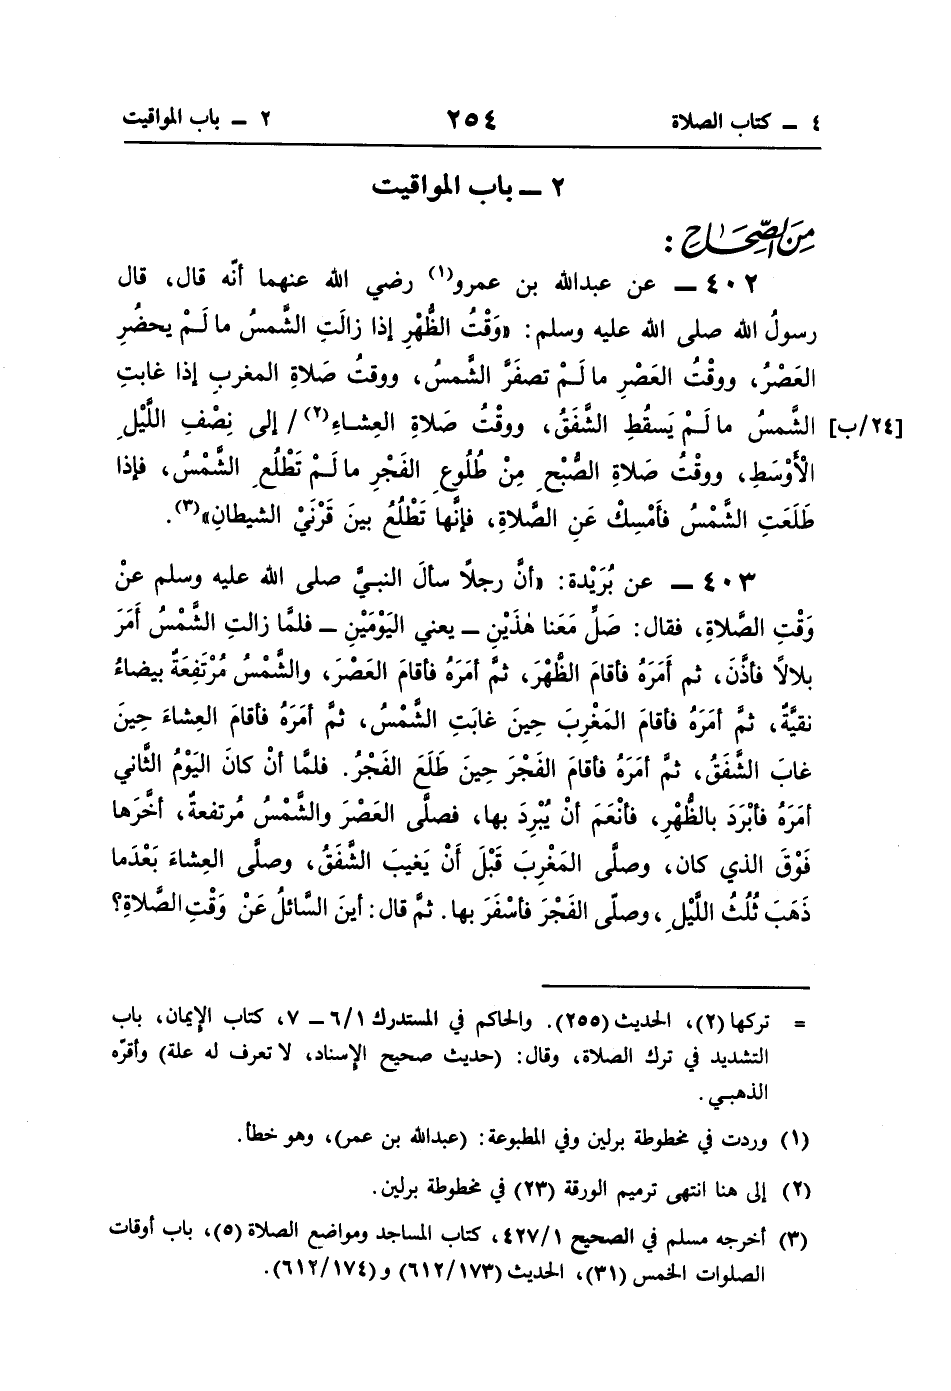 ٤ ــ كتاب الصلاة ٢٥٤ ٢ ــ باب المواقيت
٢ ــ باب المواقيت
مِنَ الصِّحَاحِ :
٤٠٢ ــ عن عبدالله بن عمرو(١) رضي الله عنهما أنّه قال، قال
رسولُ الله صلى الله عليه وسلم: «وَقْتُ الظُّهْرِ إذا زالَتِ الشَّمسُ ما لَمْ يحضُرِ
العَصْرُ، ووقْتُ العَصْرِ ما لَمْ تصفَرَّ الشَّمسُ، ووقتُ صَلاةِ المغربِ إذا غابتِ
الشَّمسُ ما لَمْ يَسقُطِ الشَّفَقُ، ووقْتُ صَلاةِ العِشاءِ(٢)/ إلى نِصْفِ اللَّيْلِ [٢٤/ب]
الْأَوْسَطِ، ووقْتُ صَلاةِ الصُّبْحِ مِنْ طُلُوعِ الفَجْرِ ما لَمْ تَطْلُعِ الشَّمْسُ، فإذا
طَلَعَتِ الشَّمْسُ فأمْسِكْ عَنِ الصَّلاةِ، فإنَّها تَطْلُعُ بينَ قَرْنَيْ الشيطانِ»(٣).
٤٠٣ ــ عن بُرَيْدة: «أنَّ رجلًا سألَ النبيَّ صلى الله عليه وسلم عنْ
وَقْتِ الصَّلاةِ، فقال: صَلِّ مَعَنا هٰذَيْنِ ــ يعني اليَوْمَيْنِ ــ فلمَّا زالتِ الشَّمْسُ أمَرَ
بلالًا فأذَّنَ، ثم أَمَرَهُ فأقامَ الظُّهْرَ، ثمَّ أمَرَهُ فأقامَ العَصْرَ، والشَّمْسُ مُرْتَفِعَةٌ بيضاءُ
نقيَّةٌ، ثمَّ أمَرَهُ فأقامَ المَغْرِبَ حِينَ غابَتِ الشَّمْسُ، ثمَّ أمَرَهُ فأقامَ العِشاءَ حِينَ
غابَ الشَّفَقُ، ثمَّ أمَرَهُ فأقامَ الفَجْرَ حِينَ طَلَعَ الفَجْرُ. فلمَّا أنْ كانَ اليَوْمُ الثَّاني
أمَرَهُ فأبْرَدَ بالظُّهْرِ، فأنْعَمَ أنْ يُبْرِدَ بها، فصلَّى العَصْرَ والشَّمْسُ مُرتفعةٌ، أخَّرَها
فَوْقَ الذي كان، وصلَّى المَغْرِبَ قَبْلَ أنْ يَغيبَ الشَّفَقُ، وصلَّى العِشاءَ بَعْدَما
ذَهَبَ ثُلُثُ اللَّيْلِ، وصلّى الفَجْرَ فأسْفَرَ بها. ثمَّ قال: أينَ السَّائلُ عَنْ وَقْتِ الصَّلاةِ؟
= تركها (٢)، الحديث (٢٥٥). والحاكم في المستدرك ٦/١ ــ ٧، كتاب الإيمان، باب
التشديد في ترك الصلاة، وقال: (حديث صحيح الإسناد، لا تعرف له علة) وأقرّه
الذهبي.
(١) وردت في مخطوطة برلين وفي المطبوعة: (عبدالله بن عمر)، وهو خطأ.
(٢) إلى هنا انتهى ترميم الورقة (٢٣) في مخطوطة برلين.
(٣) أخرجه مسلم في الصحيح ٤٢٧/١، كتاب المساجد ومواضع الصلاة (٥)، باب أوقات
الصلوات الخمس (٣١)، الحديث (٦١٢/١٧٣) و(٦١٢/١٧٤).